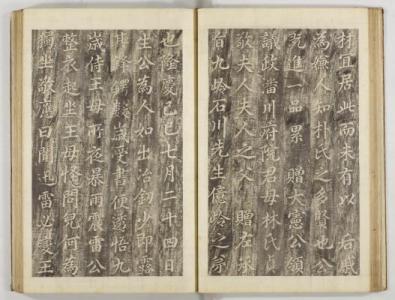 宜居此而未有以右戚
為嫌人知朴氏之多賢也公
既進一品累贈大憲公領
議政潘川府院君母林氏貞
敬夫人夫人之父贈左承
旨九齡石川先生億齡之
也隆慶己巳七月二十四日
生公為人如出冶劍少即露
其鋒歲受書便透悟九
歲侍王母所夜暴雨震雷公
整衣起坐王母怪問兒何為
獨坐敬應曰聞迅雷必變王